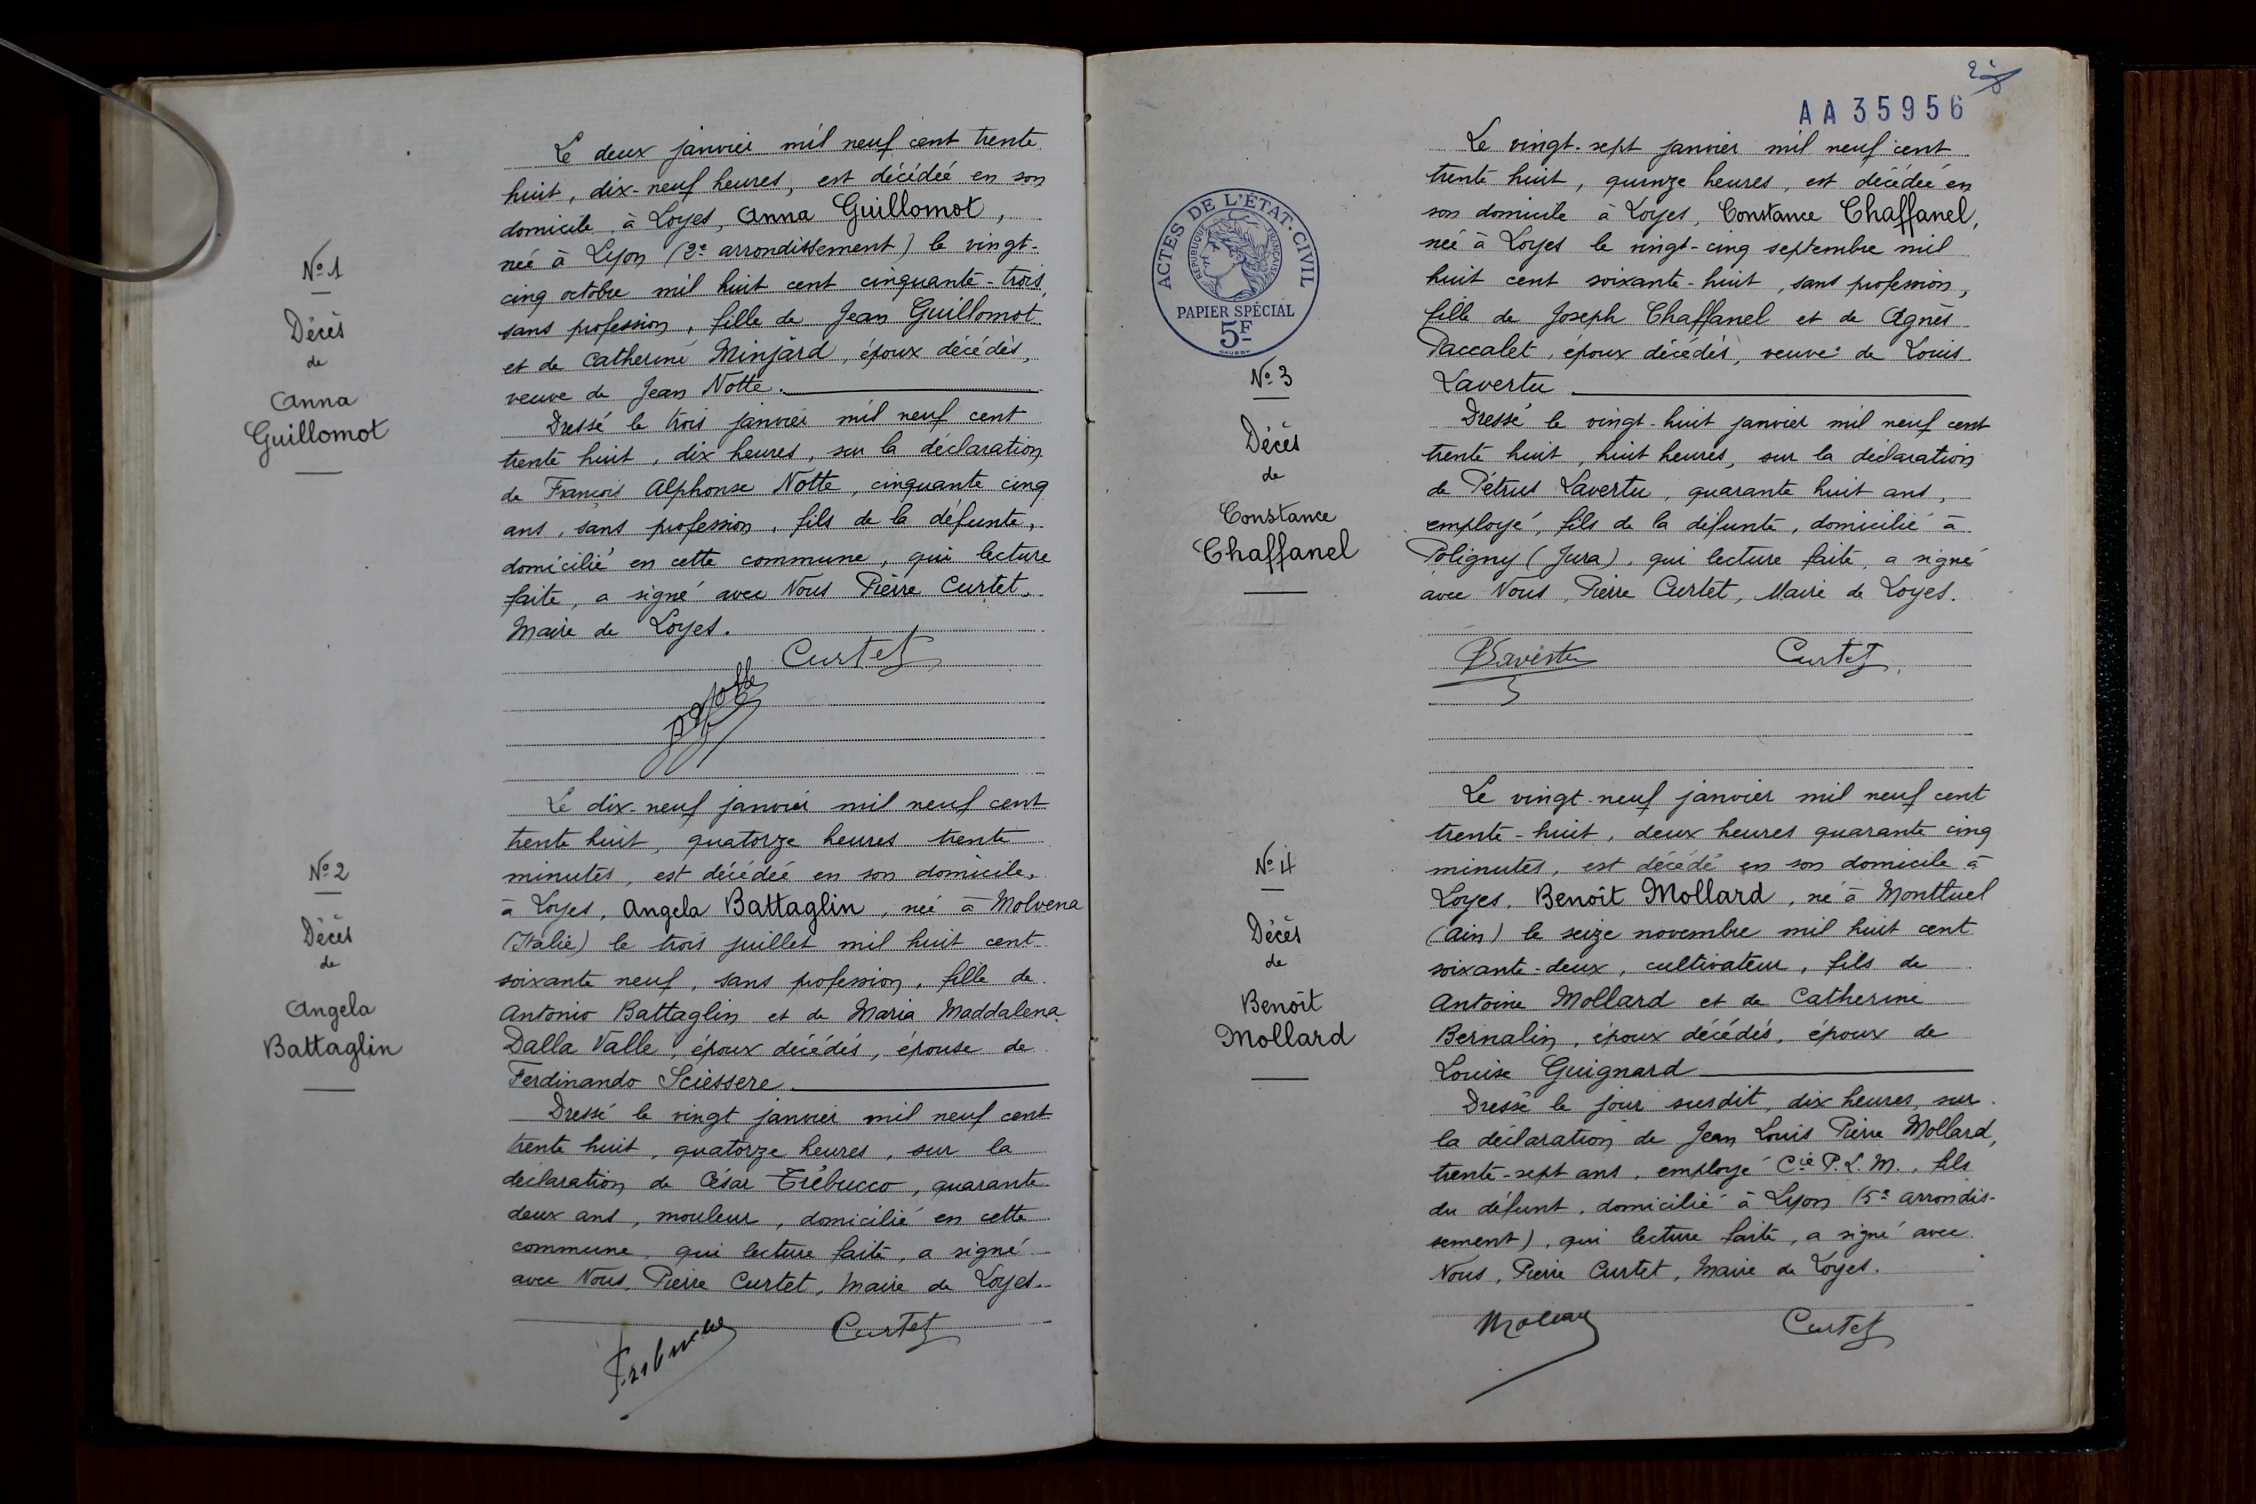 N° 1
Décès
de
Anna
Guillomot
Le deux janvier mil neuf cent trente
huit, dix-neuf heures, est décédée en son
domicile, à Loyes, Anna Guillomot,
née à Lyon (2e arrondissement) le vingt-
cinq octobre mil huit cent cinquante-trois,
sans profession, fille de Jean Guillomot
et de Catherine Minjard, époux décédés,
veuve de Jean Notte.
Dressé le trois janvier mil neuf cent
trente huit, dix heures, sur la déclaration
de François Alphonse Notte, cinquante cinq
ans, sans profession, fils de la défunte,
domicilié en cette commune, qui lecture
faite, a signé avec Nous Pierre Curtet,
Maire de Loyes.
Curtet
N° 2
Décès
de
Angela
Battaglin
Le dix-neuf janvier mil neuf cent
trente huit, quatorze heures trente
minutes, est décédée en son domicile,
à Loyes, Angela Battaglin, née à Molvena
(Italie) le trois juillet mil huit cent
soixante neuf, sans profession, fille de
Antonio Battaglin et de Maria Maddalena
Dalla Valle, époux décédés, épouse de
Ferdinando Sciessere.
Dressé le vingt janvier mil neuf cent
trente huit, quatorze heures, sur la
déclaration de César Trébucco, quarante
deux ans, mouleur, domicilié en cette
commune, qui lecture faite, a signé
avec Nous, Pierre Curtet, Maire de Loyes.
Curtet
AA 35956
ACTES DE L'ÉTAT-CIVIL
RÉPUBLIQUE FRANÇAISE
PAPIER SPÉCIAL
5F
N° 3
Décès
de
Constance
Chaffanel
Le vingt-sept janvier mil neuf cent
trente huit, quinze heures, est décédée en
son domicile à Loyes, Constance Chaffanel,
née à Loyes le vingt-cinq septembre mil
huit cent soixante-huit, sans profession,
fille de Joseph Chaffanel et de Agnès
Paccalet, époux décédés, veuve de Louis
Lavertu
Dressé le vingt-huit janvier mil neuf cent
trente huit, huit heures, sur la déclaration
de Pétrus Lavertu, quarante huit ans,
employé, fils de la défunte, domicilié à
Poligny (Jura), qui lecture faite, a signé
avec Nous, Pierre Curtet, Maire de Loyes.
PLavertu Curtet
N° 4
Décès
de
Benoît
Mollard
Le vingt-neuf janvier mil neuf cent
trente-huit, deux heures quarante cinq
minutes, est décédé en son domicile à
Loyes, Benoît Mollard, né à Montluel
(Ain) le seize novembre mil huit cent
soixante-deux, cultivateur, fils de
Antoine Mollard et de Catherine
Bernalin, époux décédés, époux de
Louise Guignard
Dressé le jour susdit, dix heures, sur
la déclaration de Jean Louis Pierre Mollard,
trente-sept ans, employé Cie P.L.M., fils
du défunt, domicilié à Lyon (5e arrondis-
sement), qui lecture faite, a signé avec
Nous, Pierre Curtet, Maire de Loyes.
Curtet